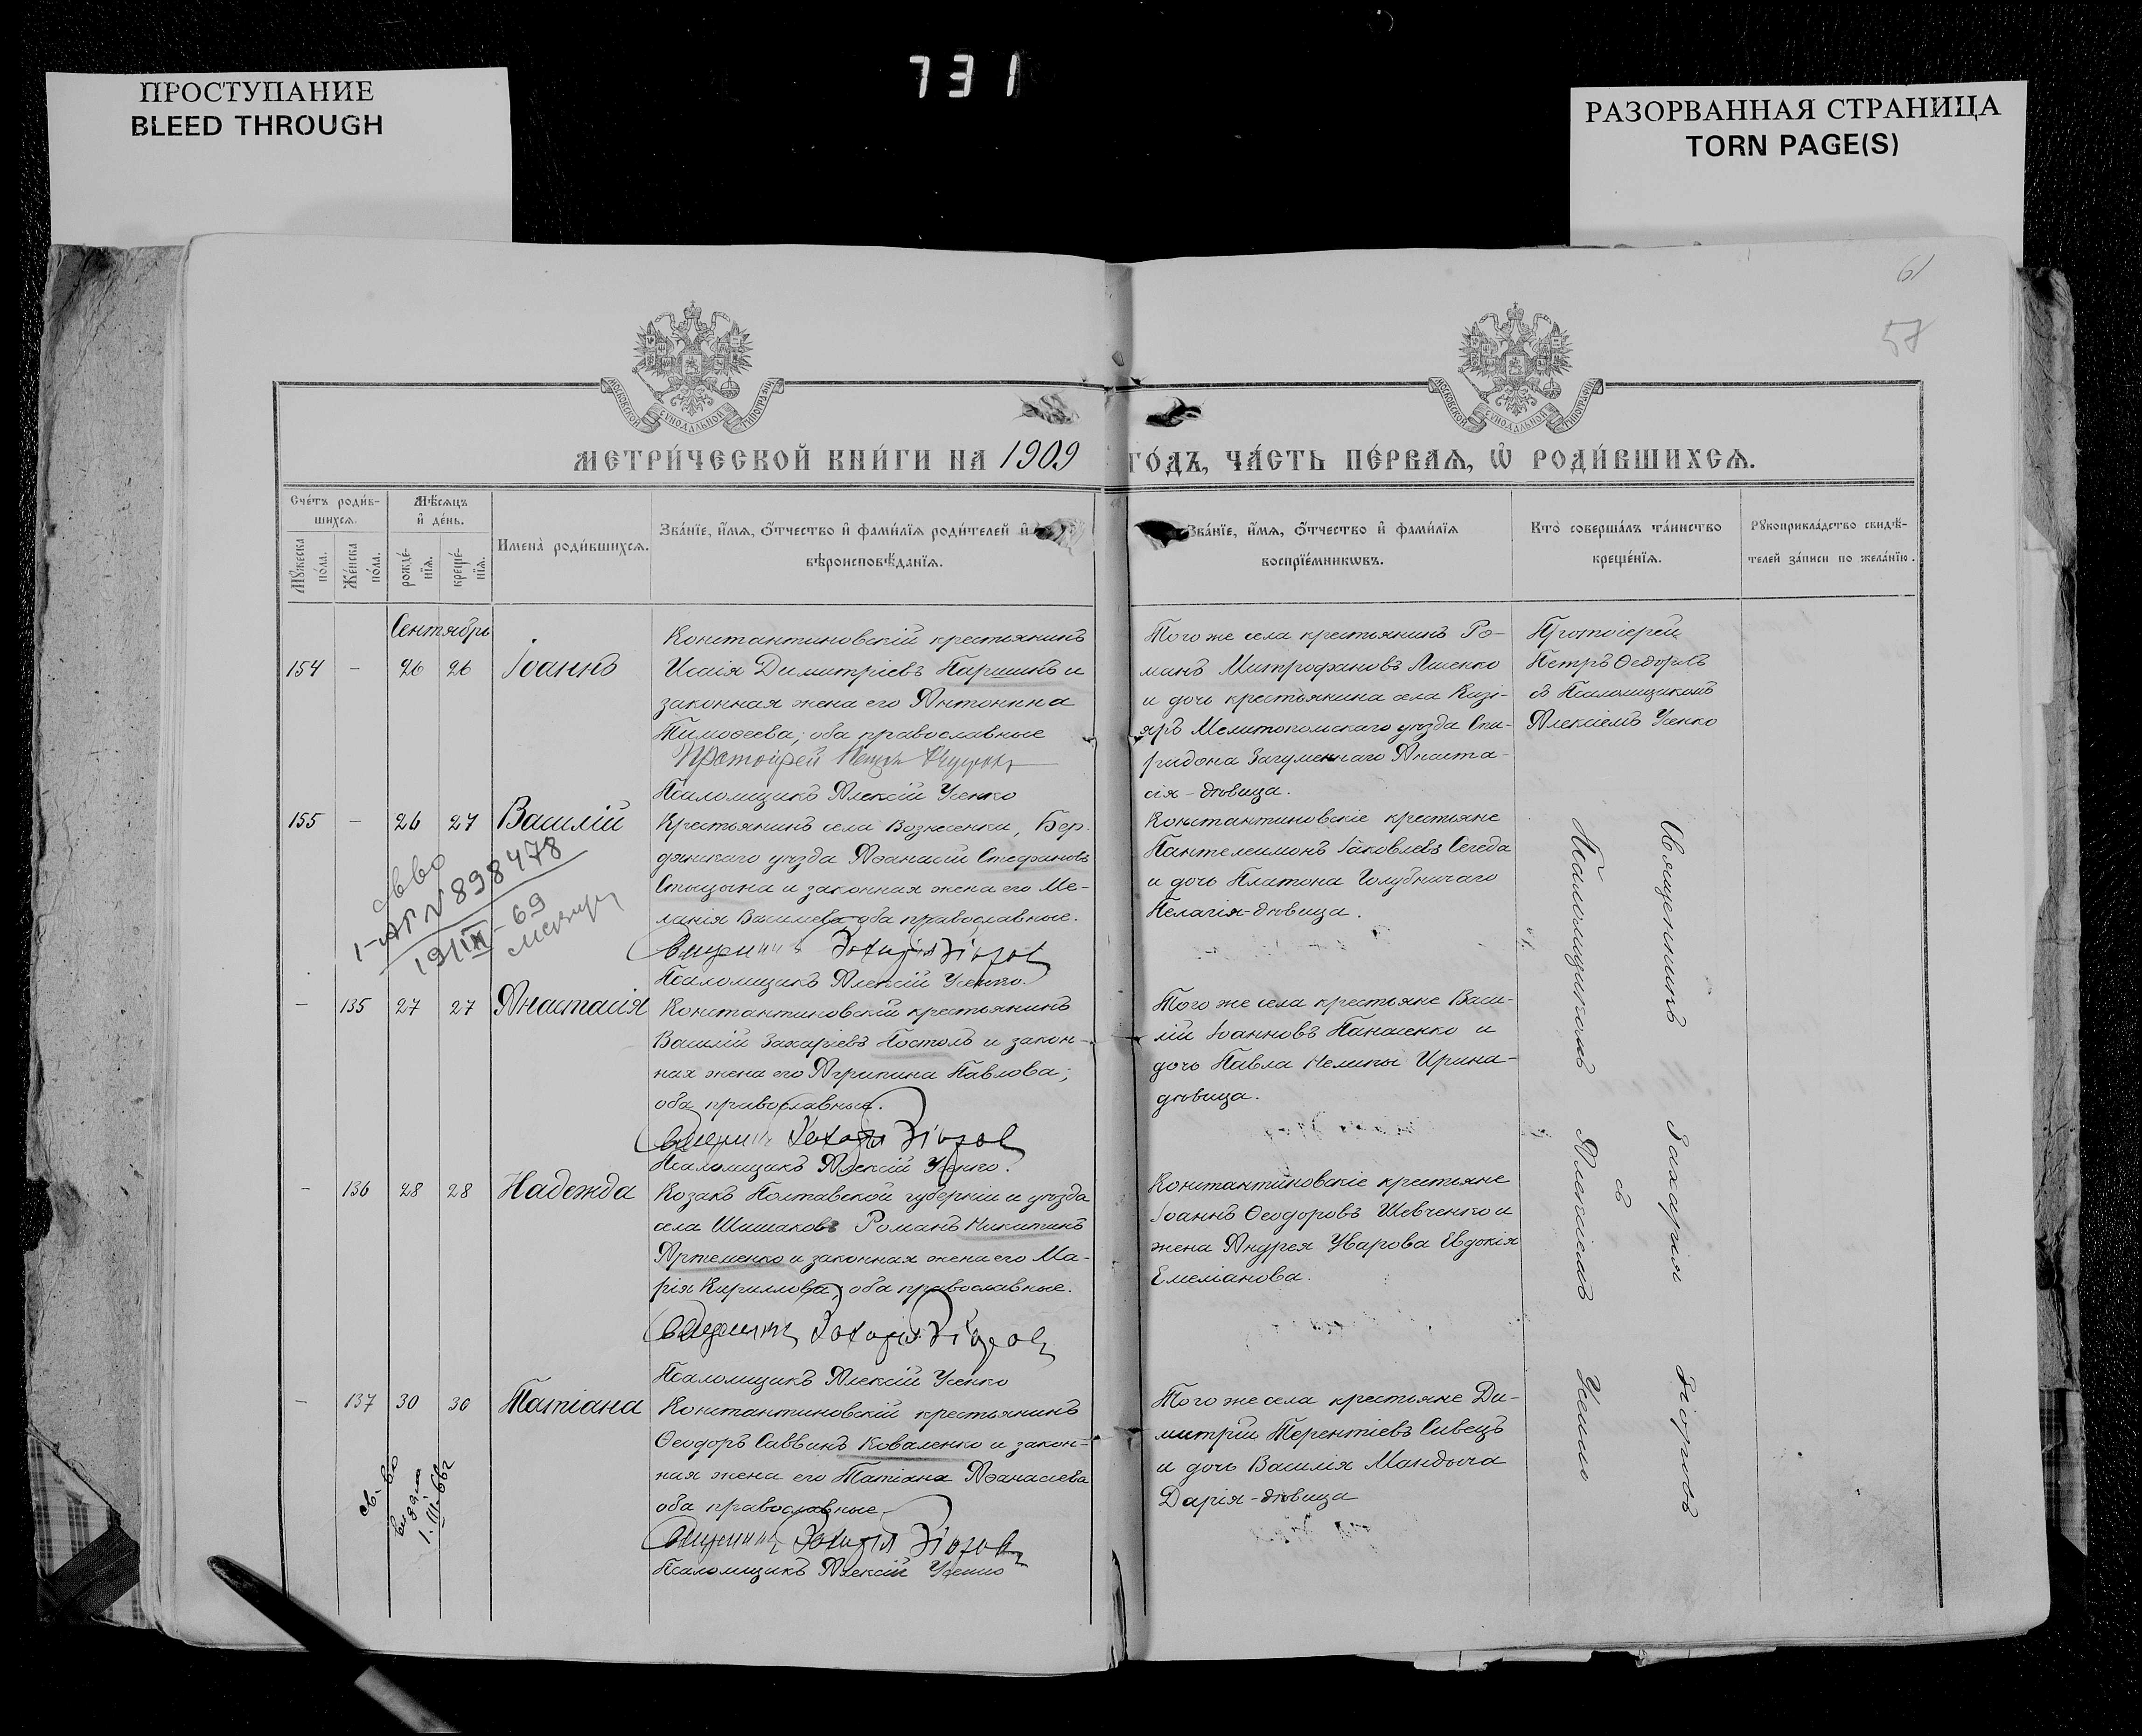 731
ПРОСТУПАНИЕ
BLEED THROUGH
РАЗОРВАННАЯ СТРАНИЦА
TORN PAGE(S)
61
57
МОСКОВСКОЙ СѴНОДАЛЬНОЙ ТИПОГРАФІИ
МОСКОВСКОЙ СѴНОДАЛЬНОЙ ТИПОГРАФІИ
МЕТРИ́ЧЕСКОЙ КНИ́ГИ НА 1909 ГО́ДЪ, ЧА́СТЬ ПЕ́РВАѦ, Ѡ҆ РОДИ́ВШИХСѦ.
Сче́тъ роди́в-
шихсѧ.
Мѣ́сѧцъ
и҆ де́нь.
Мꙋ́жеска
по́ла.
Же́нска
по́ла.
рожде́-
нїѧ.
креще́-
нїѧ.
Имена̀ роди́вшихсѧ.
Зва́нїе, и҆́мѧ, ѻ҆́тчество и҆ фами́лїѧ роди́телей и҆
вѣроисповѣ́данїѧ.
Зва́нїе, и҆́мѧ, ѻ҆́тчество и҆ фами́лїѧ
воспрїе́мникѡвъ.
Кто̀ соверша́лъ та́инство
креще́нїѧ.
Рꙋкоприкла́дство свидѣ́-
телей за́писи по жела́нїю.
Сентябрь
154 - 26 26 Іоаннъ
Константиновскій крестьянинъ
Исаія Димитріевъ Паршинъ и
законная жена его Антонина
Тимоѳеева, оба православные
Протоіерей Петръ
Псаломщикъ Алексій Усенко
Того же села крестьянинъ Ро-
манъ Митрофановъ Лисенко
и дочь крестьянина села Кизі-
яръ Мелитопольскаго уѣзда Спи-
ридона Загуменнаго Анаста-
сія-дѣвица.
Протоіерей
Петръ Ѳедоровъ
съ Псаломщикомъ
Алексіемъ Усенко
155 - 26 27 Василій
Крестьянинъ села Вознесенки, Бер-
дянскаго уѣзда Аѳанасій Стефановъ
Спицына и законная жена его Ме-
ланія Васильева, оба православные.
Священникъ Захарія Зіоровъ
Псаломщикъ Алексій Усенко.
Константиновскіе крестьяне
Пантелеимонъ Іаковлевъ Сегеда
и дочь Платона Голубничаго
Пелагія-дѣвица.
Священникъ Захарія Зіоровъ
съ
Псаломщикомъ Алексіемъ Усенко
1-АП № 898478
19/IX-69
- 135 27 27 Анастасія
Константиновскій крестьянинъ
Василій Захаріевъ Постолъ и закон-
ная жена его Агрипина Павлова;
оба православные.
Священникъ Захарія Зіоровъ
Псаломщикъ Алексій Усенко.
Того же села крестьяне Васи-
лій Іоанновъ Панасенко и
дочь Павла Нелипы Ирина-
дѣвица.
- 136 28 28 Надежда
Козакъ Полтавской губерніи и уѣзда
села Шишаковъ Романъ Никитинъ
Артеменко и законная жена его Ма-
рія Кириллова, оба православные.
Священникъ Захарія Зіоровъ
Псаломщикъ Алексій Усенко
Константиновскіе крестьяне
Іоаннъ Ѳеодоровъ Шевченко и
жена Андрея Уварова Евдокія
Емеліанова.
- 137 30 30 Татіана
Константиновскій крестьянинъ
Ѳеодоръ Саввинъ Коваленко и закон-
ная жена его Татіана Аѳанасіева
оба православные.
Священникъ Захарія Зіоровъ
Псаломщикъ Алексій Усенко
Того же села крестьяне Ди-
митрій Терентіевъ Сивецъ
и дочь Василія Мандыча
Дарія-дѣвица
св-во
выдано
1.III.66г